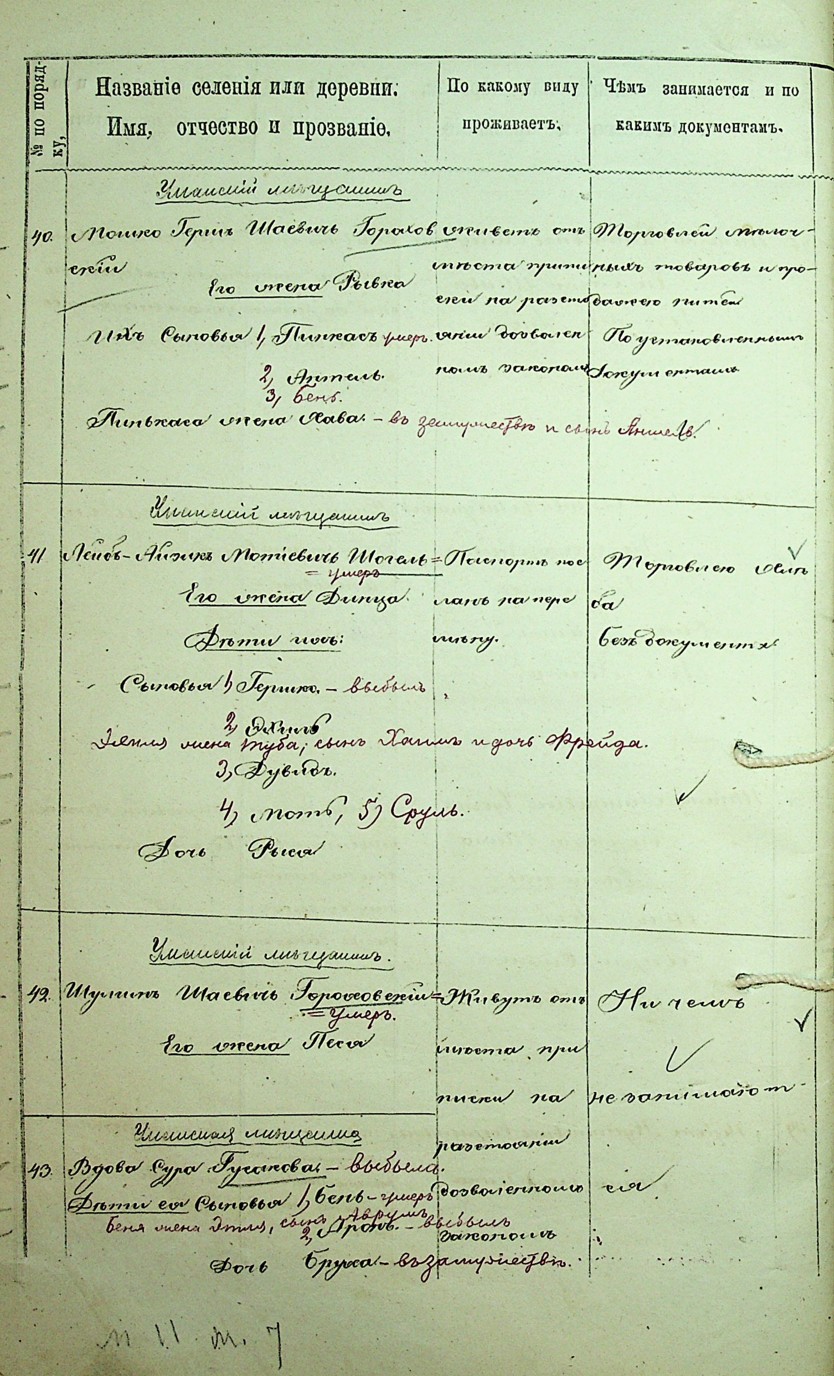 № по поряд-
ку,
Названіе селенія или деревни.
Имя, отчество и прозваніе.
По какому виду
проживаетъ.
Чѣмъ занимается и по
какимъ документамъ.
Уманскій мѣщанинъ
40.
Мошко Гершъ Шаевичъ Горохов
скій
Его жена Рывка
Ихъ Сыновья 1, Пинкасъ умеръ.
2,
3, Бень.
Пинькаса жена Хава. – въ замужествѣ и сынъ Аншель.
живетъ отъ
мѣста припи
ски на разсто
яніи дозволен
номъ закономъ
Торговлей мѣлоч-
ныхъ товаровъ и про-
дажею питей
По установленнымъ
документамъ
Уманскій мѣщанинъ
41
Лейбъ-Айзикъ Мотіевичъ Шогель =
= умеръ
Его жена Динца.
Дѣти ихъ:
Сыновья 1, Гершко – выбылъ
2,
жена Туба, сынъ Хаимъ и дочь Фрейда.
3, Дувидъ.
4, Моть, 5, Сруль.
Дочь Рыся
Паспортъ пос
ланъ на пере
мѣну.
Торговлею хлѣ
ба
безъ документа
Уманскій мѣщанинъ.
42.
Шулимъ Шаевичъ Гороховскій =
= умеръ.
Его жена Песя
Живутъ отъ
мѣста при
писки на
разстояніи
дозволенномъ
закономъ
Ни чемъ
не занимают-
ся
Уманская мѣщанка
43.
Вдова Сура Гусакова. – выбыла.
Дѣти ея Сыновья 1, Бень – умеръ
Беня жена Этля, сынъ Аврумъ
2, Аронъ. – выбылъ
Дочь Бруха – въ замужествѣ.